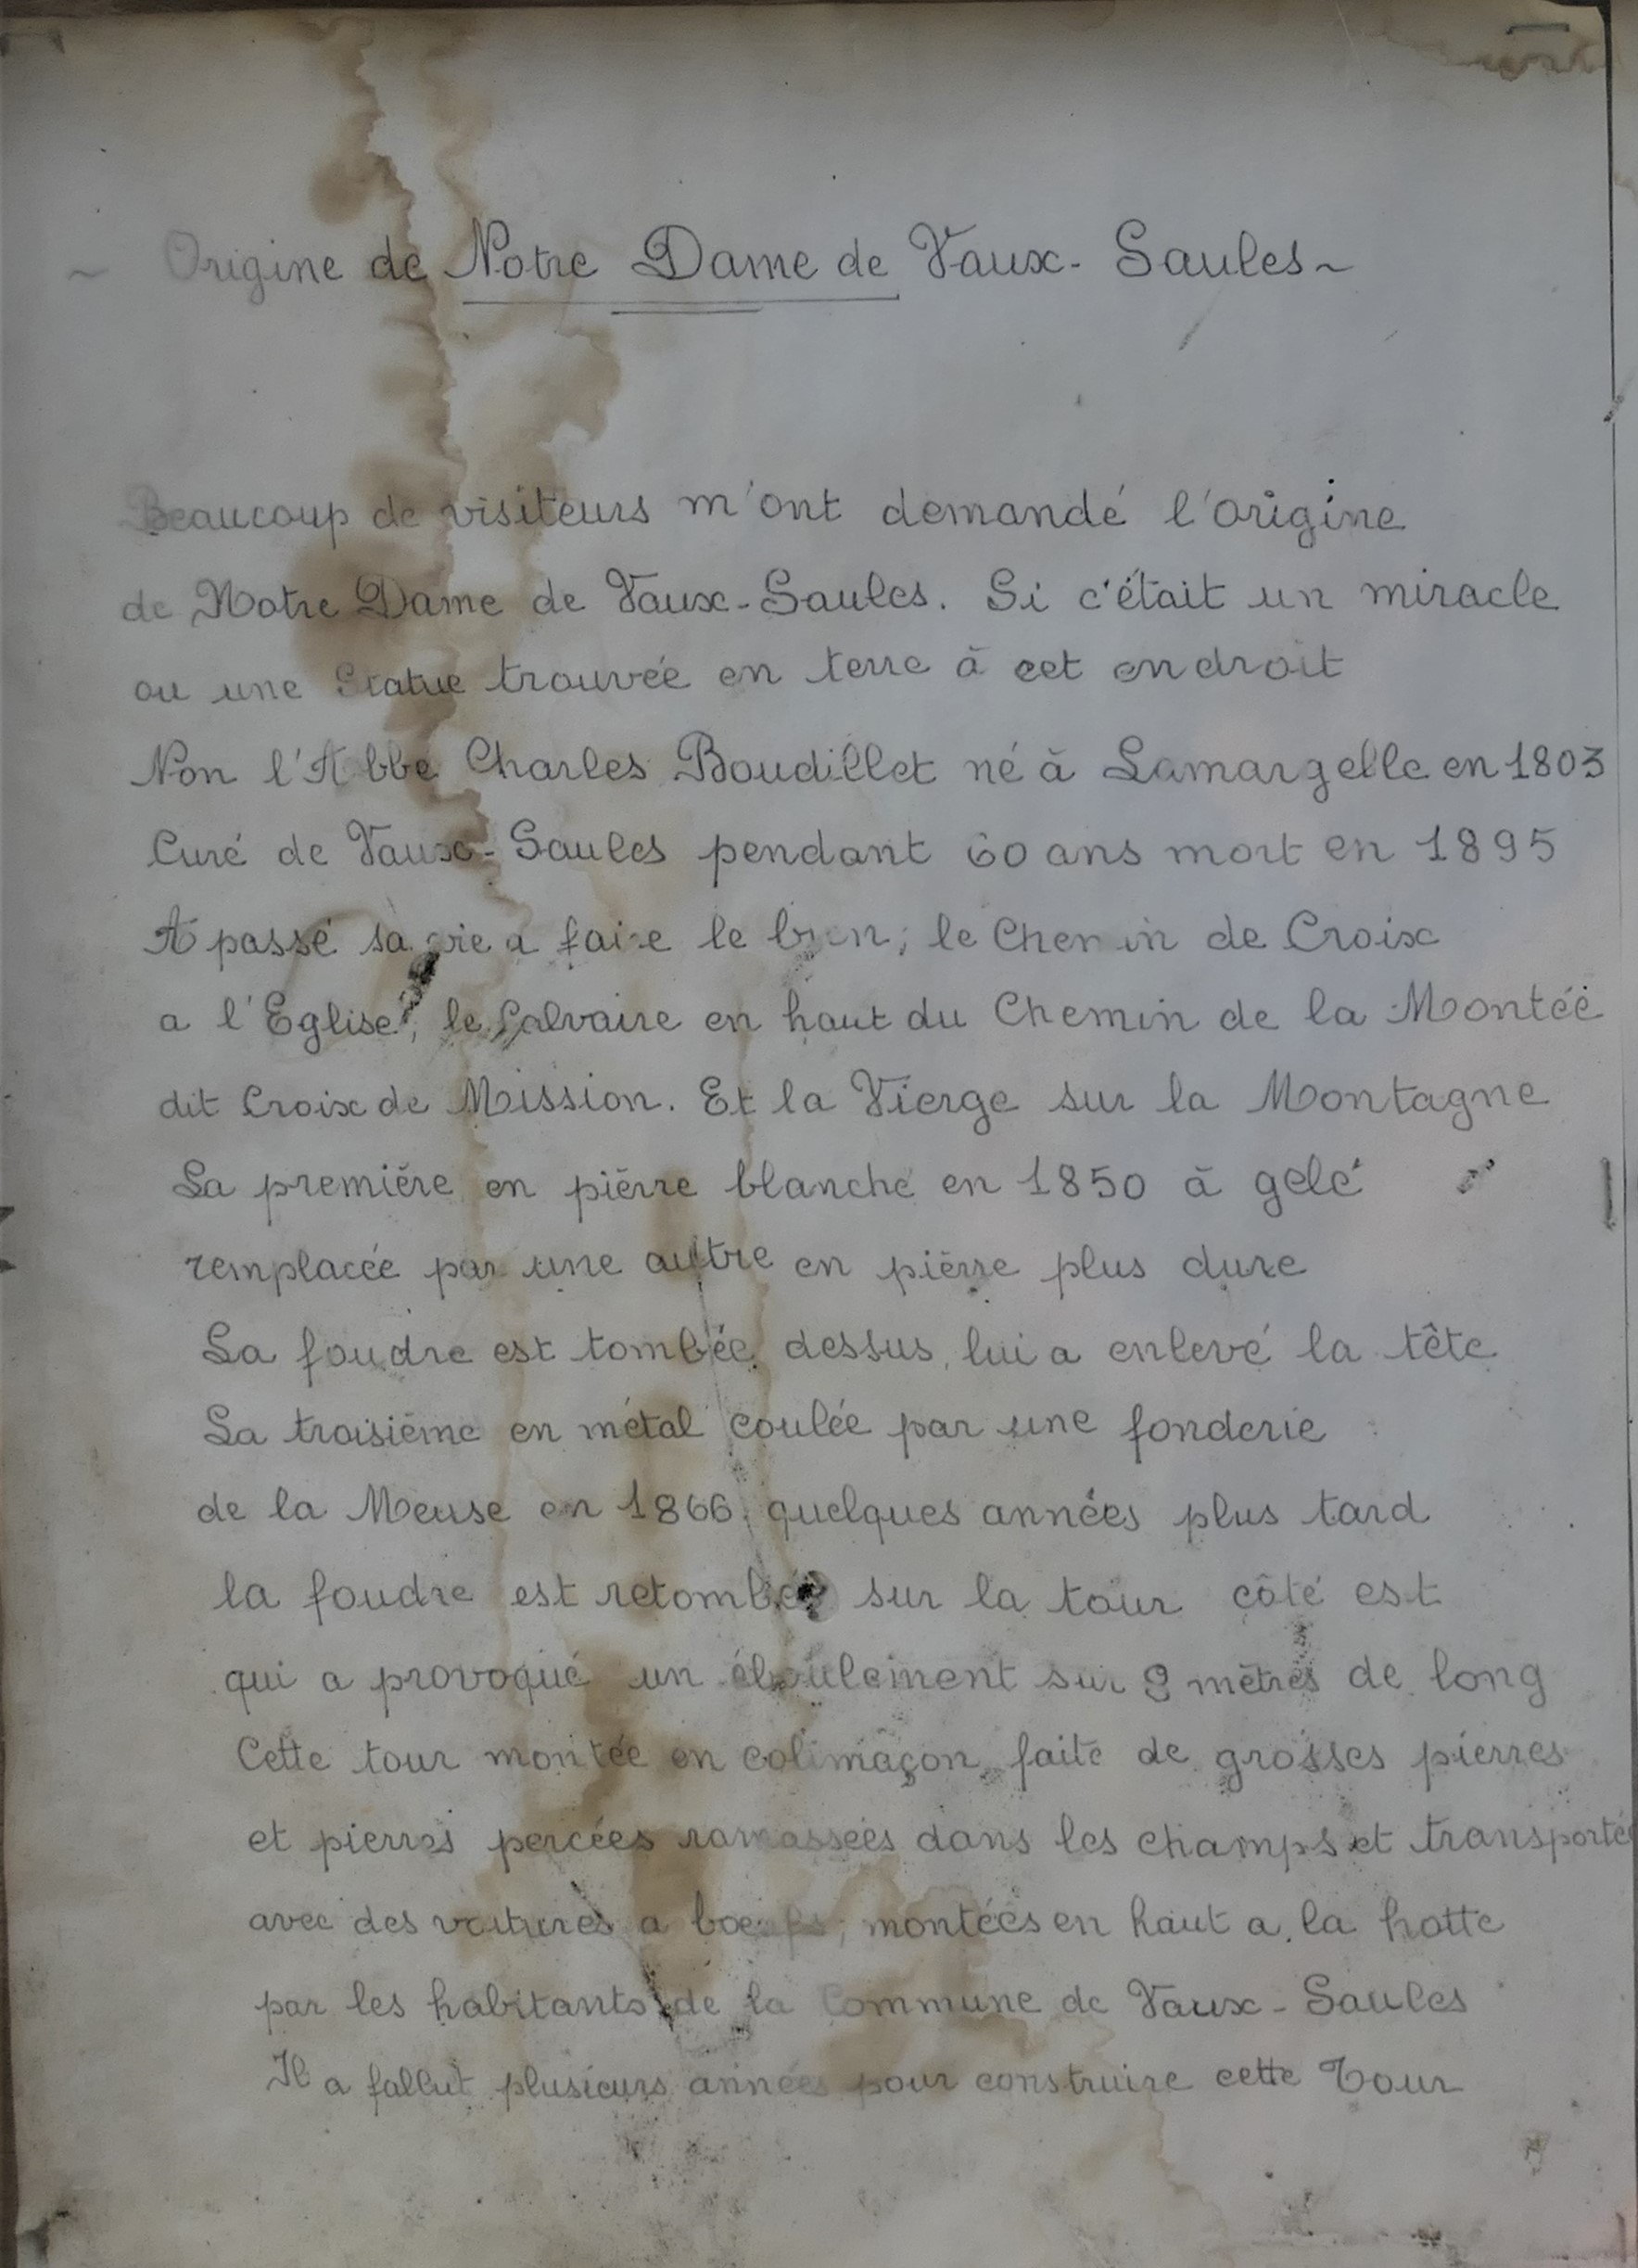 ~ Origine de Notre Dame de Vaux-Saules ~
Beaucoup de visiteurs m'ont demandé l'origine
de Notre Dame de Vaux-Saules. Si c'était un miracle
ou une Statue trouvée en terre à cet endroit
Non l'Abbé Charles Boudillet né à Lamargelle en 1803
Curé de Vaux-Saules pendant 60 ans mort en 1895
A passé sa vie a faire le bien; le Chemin de Croix
a l'Eglise, le Calvaire en haut du Chemin de la Montée
dit Croix de Mission. Et la Vierge sur la Montagne
La première en pièrre blanche en 1850 à gelé
remplacée par une autre en pièrre plus dure
La foudre est tombée dessus, lui a enlevé la tête
La troisième en métal coulée par une fonderie
de la Meuse en 1866, quelques années plus tard
la foudre est retombée sur la tour côté est
qui a provoqué un éboulement sur mètres de long
Cette tour montée en colimaçon, faite de grosses pierres
et pierres percées ramassées dans les champs et transportée
avec des voitures a boeufs, montées en haut a la hotte
par les habitants de la Commune de Vaux-Saules
Il a fallut plusieurs années pour construire cette Tour